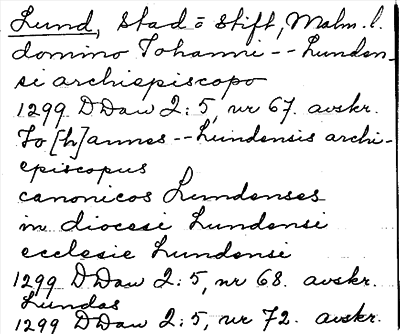 Lund, Stad o Stift, Malm. l.
domino Johanni -- Lunden-
si archiepiscopo
1299 DDan 2:5, nr 67. avskr.
Jo[h]annes -- Lundensis archi-
episcopus
canonicos Lundenses
in diocesi Lundensi
ecclesie Lundensi
1299 DDan 2:5, nr 68. avskr.
Lundas
1299 DDan 2:5, nr 72. avskr.